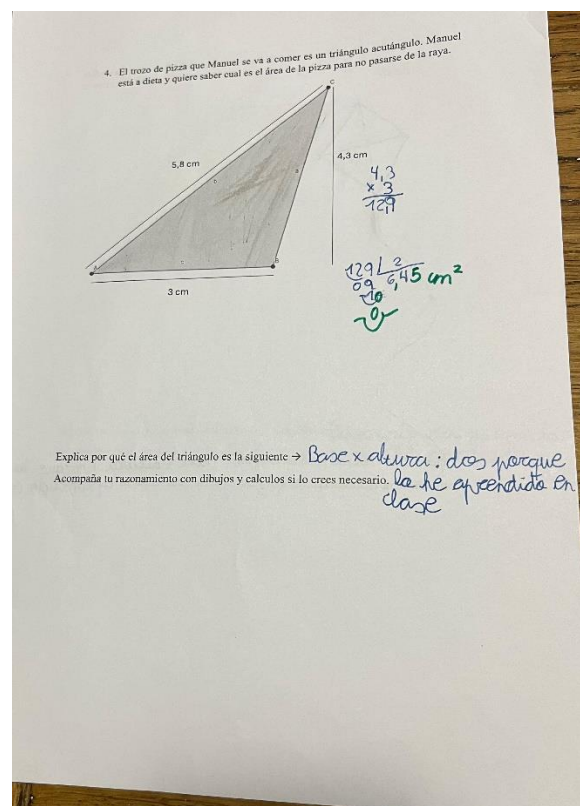 4. El trozo de pizza que Manuel se va a comer es un triángulo acutángulo. Manuel
está a dieta y quiere saber cual es el área de la pizza para no pasarse de la raya.
C
5,8 cm
4,3 cm
4,3
× 3
12,9
B
3 cm
129 2
09 6,45 cm²
10
0
Explica por qué el área del triángulo es la siguiente → Base x altura : dos porque
Acompaña tu razonamiento con dibujos y calculos si lo crees necesario. lo he aprendido en
clase